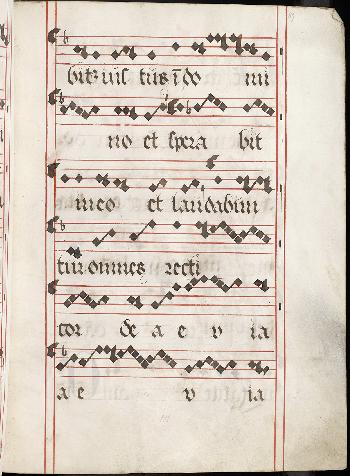 bit᷒ iusᷤ tus ī do mi
no et spera bit
in eo et laudabun
tur omnes recti
cor de a e v ia
a e v ia